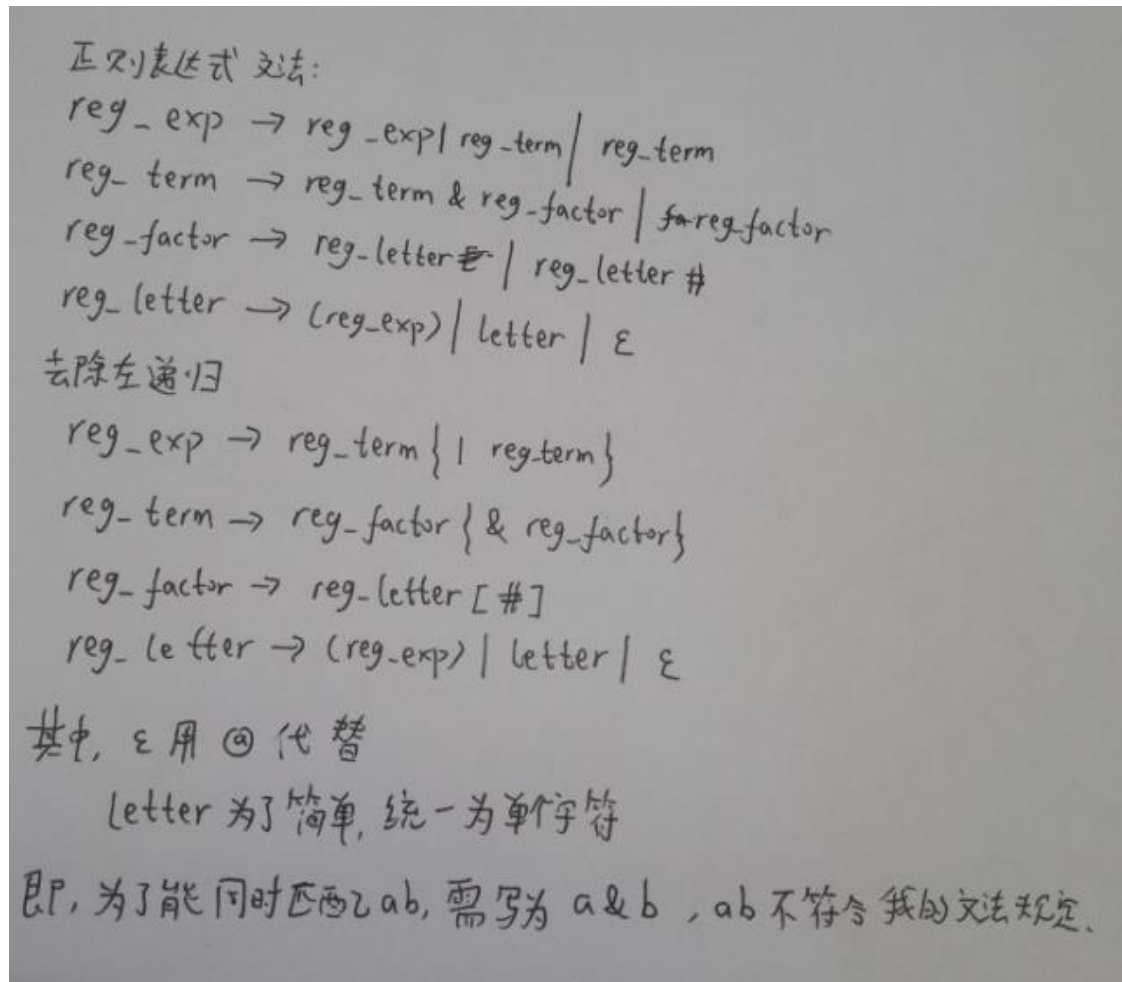 正则表达式文法:
reg_exp → reg_exp| reg_term | reg_term
reg_term → reg_term & reg_factor | reg_factor
reg_factor → reg_letter | reg_letter #
reg_letter → (reg_exp) | letter | ε
去除左递归
reg_exp → reg_term { | reg_term}
reg_term → reg_factor { & reg_factor}
reg_factor → reg_letter [ # ]
reg_letter → (reg_exp) | letter | ε
其中, ε 用 @ 代替
letter 为了简单, 统一为单个字符
即, 为了能同时匹配ab, 需写为 a&b , ab 不符合我的文法规定.